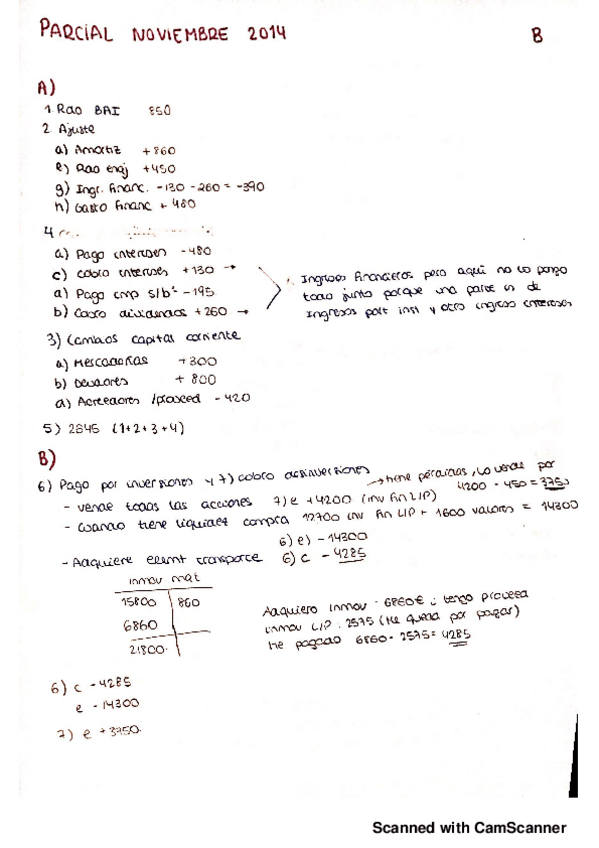 PARCIAL NOVIEMBRE 2014 B
A)
1. Rdo BAI 850
2. Ajuste
a) Amortiz +860
e) Rdo enaj +450
g) Ingr. Financ. -130 - 260 = -390
h) Gasto Financ + 480
4
a) Pago intereses -480
c) Cobro intereses +130 →
d) Pago imp s/bº -195
b) Cobro dividendos +260 →
Ingresos Financieros pero aqui no lo pongo
todo junto porque una parte es de
Ingresos part inst y otro ingreso intereses
3) Cambios capital corriente
a) Mercaderías +300
b) Deudores + 800
d) Acreedores /proveed - 420
5) 2645 (1+2+3+4)
B)
6) Pago por inversiones y 7) cobro desinversiones
→ tiene pérdidas, lo vende por
4200 - 450 = 3750
- vende todas las acciones 7) e +4200 (inv fin L/P)
- cuando tiene liquidez compra 12700 inv fin L/P + 1600 valores = 14300
6) e) - 14300
- Adquiere elemt transporte 6) c - 4285
inmov mat
15800 860
6860
21800
Adquiero inmov. 6860€ ; tengo proveed
inmov L/P. 2575 (Me queda por pagar)
He pagado 6860 - 2575 = 4285
6) c - 4285
e - 14300
7) e + 3750.
Scanned with CamScanner